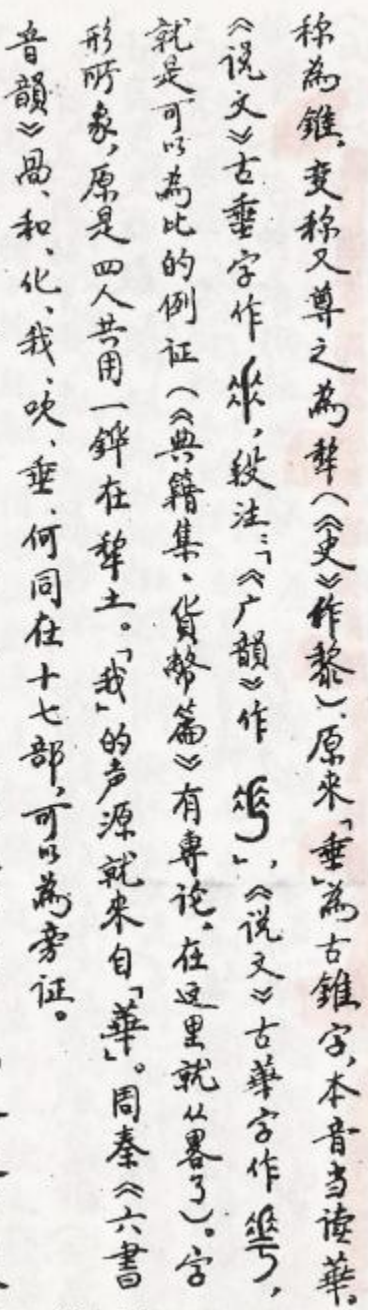 称為錐。变称又尊之為犂(《史》作黎)。原来「垂」為古錐字,本音当读華。
《说文》古垂字作𠂹,段注:「《广韻》作」,《说文》古華字作,
就是可以為比的例证(《典籍集、貨幣篇》有專论。在这里就从畧了)。字
形所象,原是四人共用一鏵在犂土。「我」的声源就来自「華」。周秦《六書
音韻》咼、和、化、我、吹、垂、何同在十七部,可以為旁证。